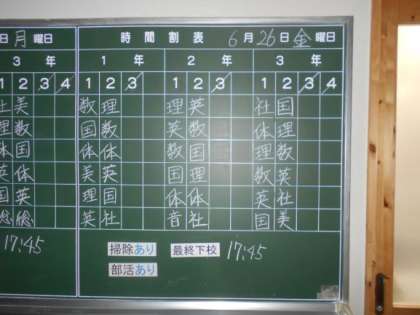 日月曜日 時間割表 6月26日金曜日
3年 1年 2年 3年
1 2 3 4 1 2 3 1 2 3 1 2 3 4
社 美 数 理 理 英 社 国
理 数 国 数 英 数 体 理
体 国 体 体 数 国 理 数
英 体 美 英 国 理 数 英
国 英 理 国 体 体 英 体
総 総 英 社 音 社 国 美
17:45 掃除あり 最終下校 17:45
部活あり